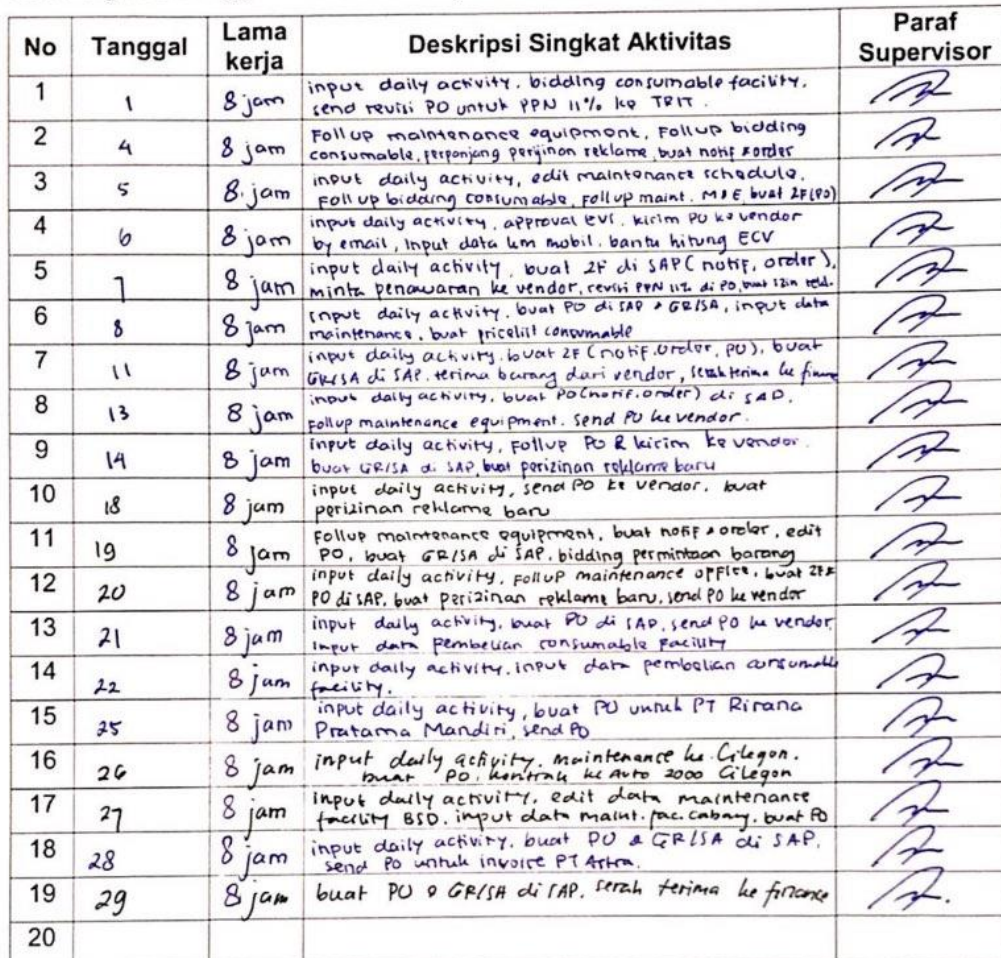 No Tanggal Lama kerja Deskripsi Singkat Aktivitas Paraf Supervisor
1 1 8 jam input daily activity, bidding consumable facility,
send revisi PO untuk PPN 11% ke TRIT.
2 4 8 jam Follup maintenance equipment, Follup bidding
consumable, perpanjang perijinan reklame, buat notif & order
3 5 8 jam input daily activity, edit maintenance schedule,
Follup bidding consumable, follup maint. M&E, buat 2F (PO)
4 6 8 jam input daily activity, approval EVI, kirim PO ke vendor
by email, input data km mobil, bantu hitung ECV
5 7 8 jam input daily activity, buat 2F di SAP (notif, order),
minta penawaran ke vendor, revisi PPN 11% di PO, buat izin rekl.
6 8 8 jam input daily activity, buat PO di SAP & GR/SA, input data
maintenance, buat pricelist consumable
7 11 8 jam input daily activity, buat 2F (notif, order, PO), buat
GR/SA di SAP, terima barang dari vendor, serah terima ke finance
8 13 8 jam input daily activity, buat PO (notif, order) di SAP,
Follup maintenance equipment, send PO ke vendor.
9 14 8 jam input daily activity, Follup PO & kirim ke vendor.
buat GR/SA di SAP, buat perizinan reklame baru
10 18 8 jam input daily activity, send PO ke vendor, buat
perizinan reklame baru
11 19 8 jam Follup maintenance equipment, buat notif & order, edit
PO, buat GR/SA di SAP, bidding permintaan barang
12 20 8 jam input daily activity, Follup maintenance office, buat 2F &
PO di SAP, buat perizinan reklame baru, send PO ke vendor
13 21 8 jam input daily activity, buat PO di SAP, send PO ke vendor,
input data pembelian consumable facility
14 22 8 jam input daily activity, input data pembelian consumable
facility.
15 25 8 jam input daily activity, buat PO untuk PT Rirana
Pratama Mandiri, send PO
16 26 8 jam input daily activity, maintenance ke Cilegon.
buat PO, kontrak ke Auto 2000 Cilegon
17 27 8 jam input daily activity, edit data maintenance
facility BSD, input data maint. fac. cabang, buat PO
18 28 8 jam input daily activity, buat PO & GR/SA di SAP,
send PO untuk invoice PT Astra.
19 29 8 jam buat PO & GR/SA di SAP, serah terima ke finance
20